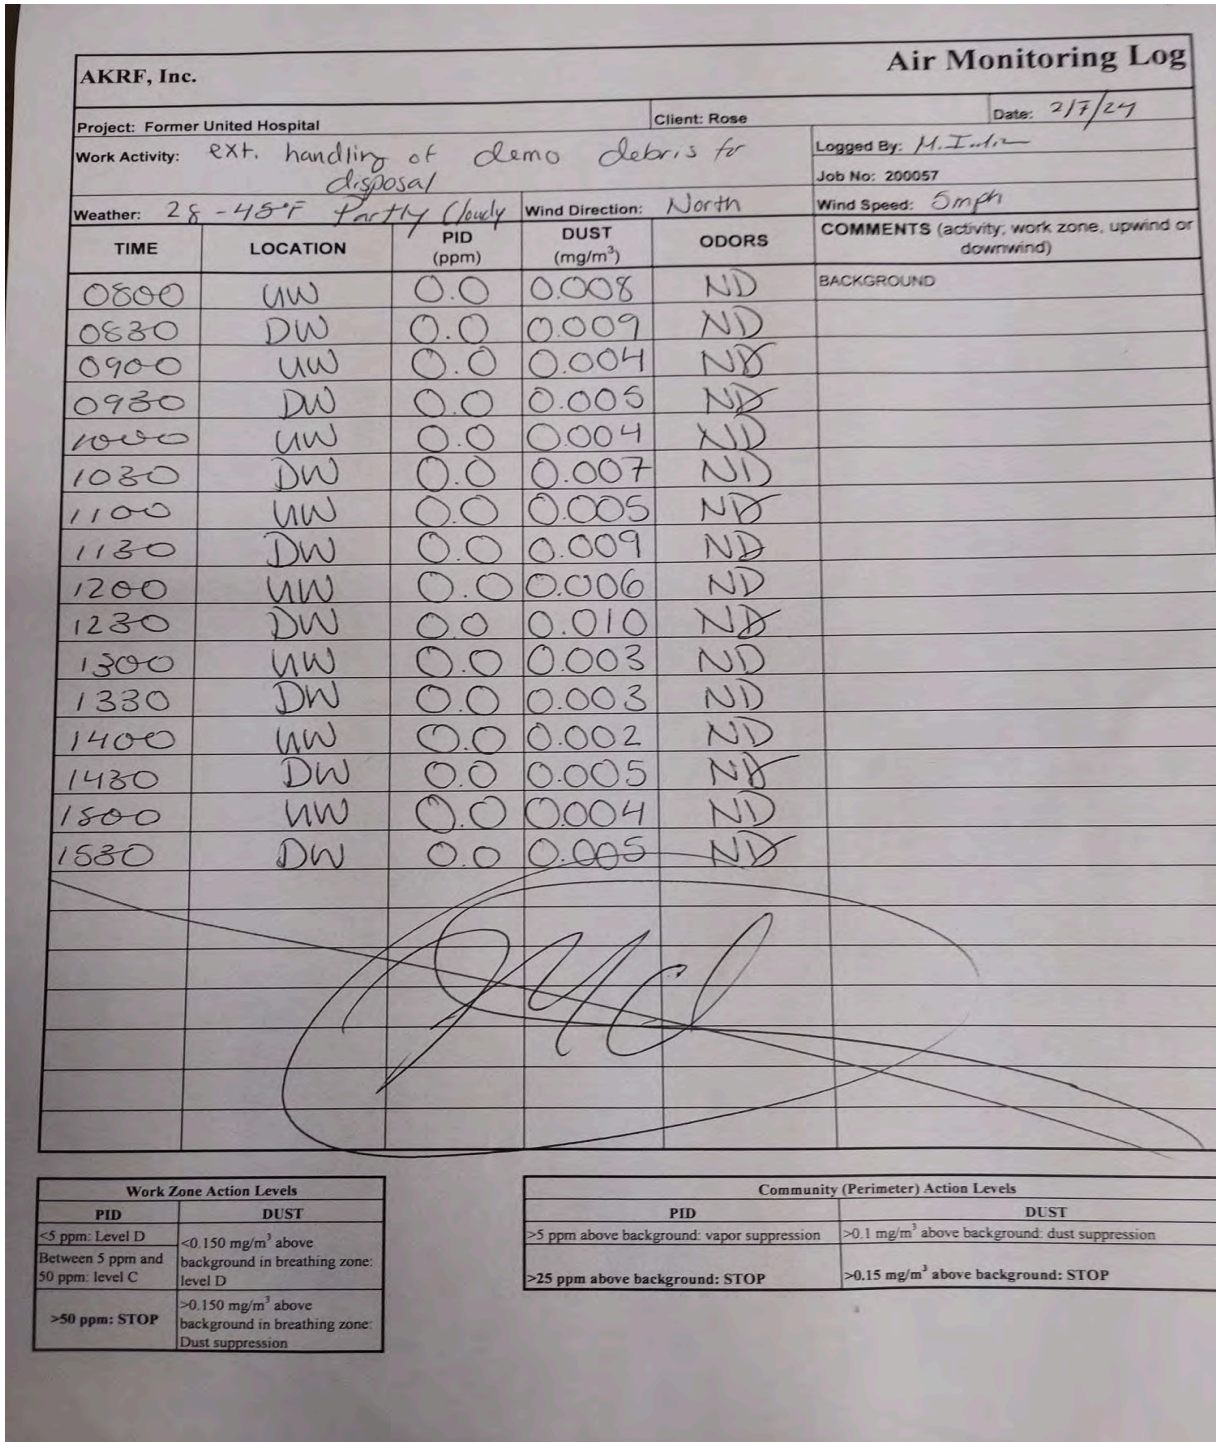 AKRF, Inc.
Air Monitoring Log
Project: Former United Hospital Client: Rose Date: 2/7/24
Work Activity: ext. handling of demo debris for
disposal
Logged By: M.
Job No: 200057
Weather: 28 - 45°F Partly Cloudy Wind Direction: North Wind Speed: 5mph
TIME LOCATION PID (ppm) DUST (mg/m³) ODORS COMMENTS (activity, work zone, upwind or downwind)
0800 UW 0.0 0.008 ND BACKGROUND
0830 DW 0.0 0.009 ND
0900 UW 0.0 0.004 ND
0930 DW 0.0 0.005 ND
1000 UW 0.0 0.004 ND
1030 DW 0.0 0.007 ND
1100 UW 0.0 0.005 ND
1130 DW 0.0 0.009 ND
1200 UW 0.0 0.006 ND
1230 DW 0.0 0.010 ND
1300 UW 0.0 0.003 ND
1330 DW 0.0 0.003 ND
1400 UW 0.0 0.002 ND
1430 DW 0.0 0.005 ND
1500 UW 0.0 0.004 ND
1530 DW 0.0 0.005 ND
Work Zone Action Levels
PID DUST
<5 ppm: Level D
Between 5 ppm and
50 ppm: level C
<0.150 mg/m³ above
background in breathing zone:
level D
>50 ppm: STOP
>0.150 mg/m³ above
background in breathing zone:
Dust suppression
Community (Perimeter) Action Levels
PID DUST
>5 ppm above background: vapor suppression >0.1 mg/m³ above background: dust suppression
>25 ppm above background: STOP >0.15 mg/m³ above background: STOP